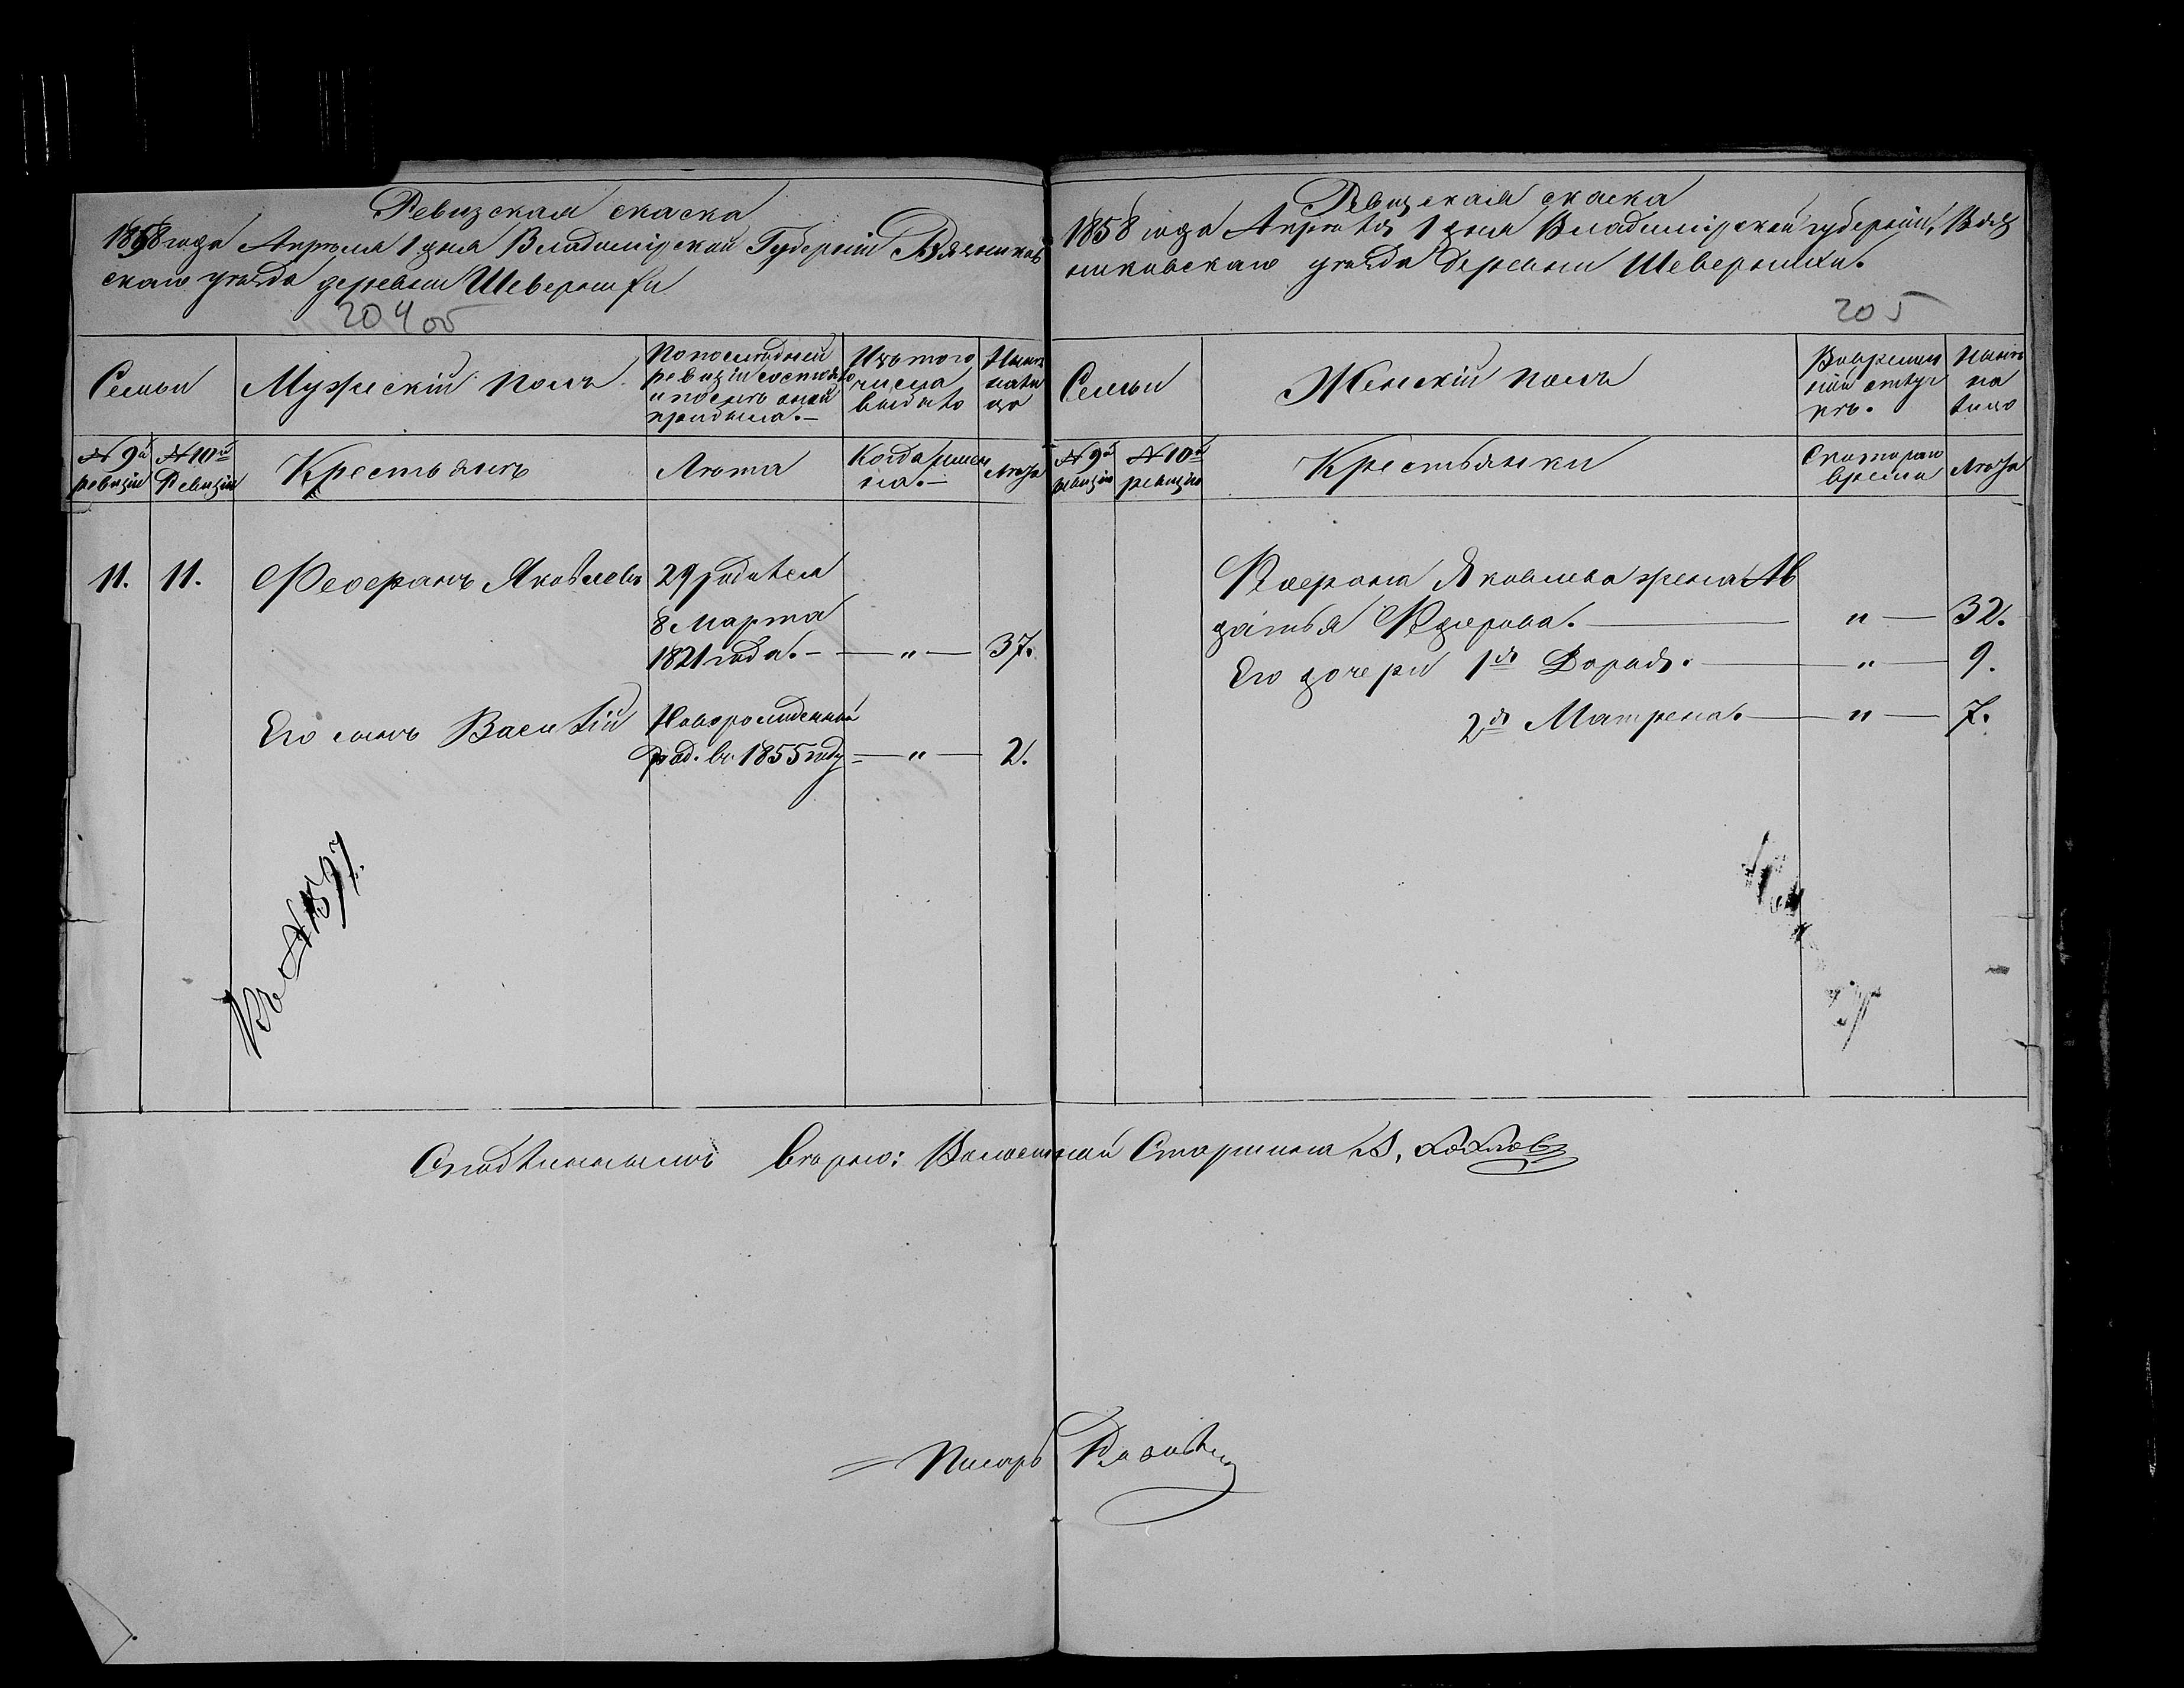 Ревизская скаска
1858 года Апреля 1 дня Владимірской Губерніи Вязников
скаго уѣзда деревни Шевернихи
204 об
Семьи
Мужескій полъ
По последней
ревизіи состояло
и послѣ оной
прибыло.
Изъ того
числа
выбыло
Нынѣ
на ли
цо
№ 9й
ревизіи
№ 10й
Ревизіи
Крестьянъ
Лѣта
Когда имен
но.
Лѣта
11.
11.
Яковлевъ
29 родился
8 Марта
1821 года. — " — 37.
Его сынъ Василій
Новорожденный
род. въ 1855 году — " — 2.
Къ № 1537.
Ревизская скаска
1858 года Апрѣля 1 дня Владимірской губерніи, Вяз
никовскаго уѣзда деревни Шевернихи.
205
Семьи
Женскій полъ
Во времен
ной отлуч
кѣ.
Нынѣ
на
лицо
№ 9й
ревизіи
№ 10й
ревизіи
Крестьянки
Съ котораго
времени
Лѣта
Яковлева жена Ав
датья Федорова. — " — 32.
Его дочери 1я Дарья. — " — 9.
2я Матрена. — " — 7.
Съ подлиннымъ вѣрно: Волостной Старшина
Писарь